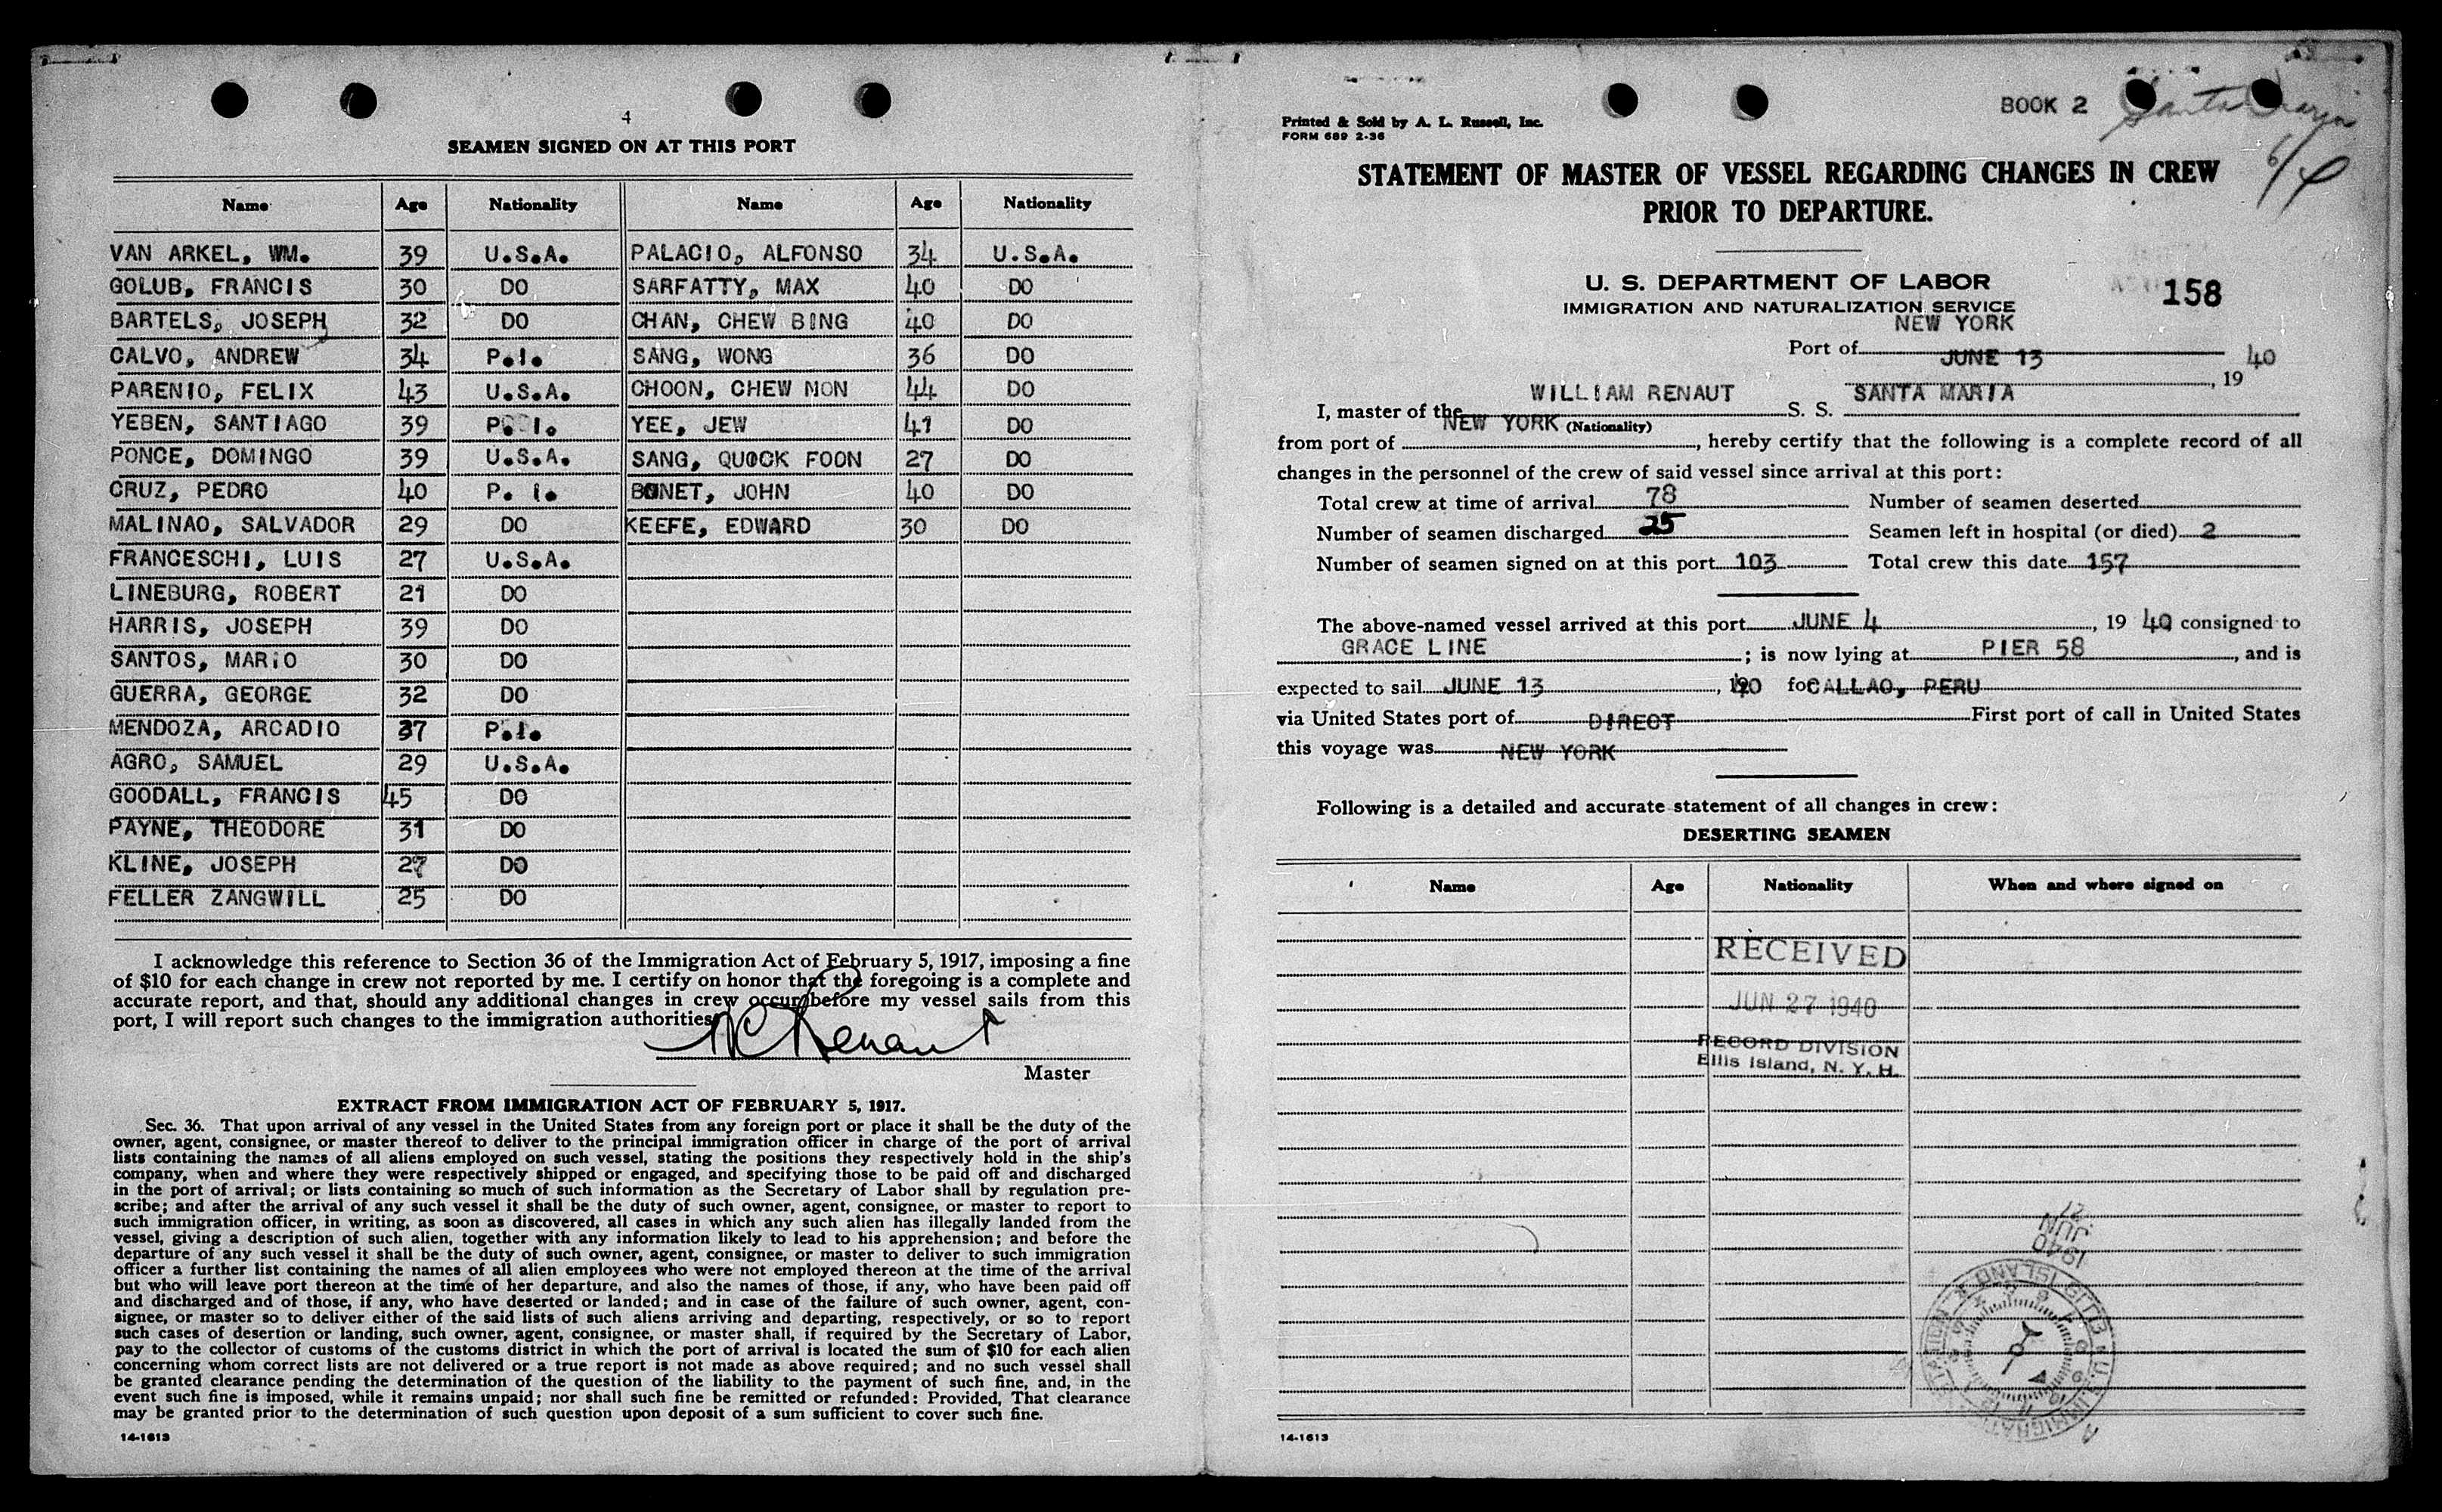 4
SEAMEN SIGNED ON AT THIS PORT
Name Age Nationality Name Age Nationality
VAN ARKEL, WM. 39 U.S.A. PALACIO, ALFONSO 34 U.S.A.
GOLUB, FRANCIS 30 DO SARFATTY, MAX 40 DO
BARTELS, JOSEPH 32 DO CHAN, CHEW BING 40 DO
CALVO, ANDREW 34 P.I. SANG, WONG 36 DO
PARENIO, FELIX 43 U.S.A. CHOON, CHEW NON 44 DO
YEBEN, SANTIAGO 39 P. I. YEE, JEW 41 DO
PONCE, DOMINGO 39 U.S.A. SANG, QUOCK FOON 27 DO
CRUZ, PEDRO 40 P. I. BONET, JOHN 40 DO
MALINAO, SALVADOR 29 DO KEEFE, EDWARD 30 DO
FRANCESCHI, LUIS 27 U.S.A.
LINEBURG, ROBERT 21 DO
HARRIS, JOSEPH 39 DO
SANTOS, MARIO 30 DO
GUERRA, GEORGE 32 DO
MENDOZA, ARCADIO 37 P.I.
AGRO, SAMUEL 29 U.S.A.
GOODALL, FRANCIS 45 DO
PAYNE, THEODORE 31 DO
KLINE, JOSEPH 27 DO
FELLER ZANGWILL 25 DO
I acknowledge this reference to Section 36 of the Immigration Act of February 5, 1917, imposing a fine
of $10 for each change in crew not reported by me. I certify on honor that the foregoing is a complete and
accurate report, and that, should any additional changes in crew occur before my vessel sails from this
port, I will report such changes to the immigration authorities.
WC Renaut
Master
EXTRACT FROM IMMIGRATION ACT OF FEBRUARY 5, 1917.
Sec. 36. That upon arrival of any vessel in the United States from any foreign port or place it shall be the duty of the
owner, agent, consignee, or master thereof to deliver to the principal immigration officer in charge of the port of arrival
lists containing the names of all aliens employed on such vessel, stating the positions they respectively hold in the ship's
company, when and where they were respectively shipped or engaged, and specifying those to be paid off and discharged
in the port of arrival; or lists containing so much of such information as the Secretary of Labor shall by regulation pre-
scribe; and after the arrival of any such vessel it shall be the duty of such owner, agent, consignee, or master to report to
such immigration officer, in writing, as soon as discovered, all cases in which any such alien has illegally landed from the
vessel, giving a description of such alien, together with any information likely to lead to his apprehension; and before the
departure of any such vessel it shall be the duty of such owner, agent, consignee, or master to deliver to such immigration
officer a further list containing the names of all alien employees who were not employed thereon at the time of the arrival
but who will leave port thereon at the time of her departure, and also the names of those, if any, who have been paid off
and discharged and of those, if any, who have deserted or landed; and in case of the failure of such owner, agent, con-
signee, or master so to deliver either of the said lists of such aliens arriving and departing, respectively, or so to report
such cases of desertion or landing, such owner, agent, consignee, or master shall, if required by the Secretary of Labor,
pay to the collector of customs of the customs district in which the port of arrival is located the sum of $10 for each alien
concerning whom correct lists are not delivered or a true report is not made as above required; and no such vessel shall
be granted clearance pending the determination of the question of the liability to the payment of such fine, and, in the
event such fine is imposed, while it remains unpaid; nor shall such fine be remitted or refunded: Provided, That clearance
may be granted prior to the determination of such question upon deposit of a sum sufficient to cover such fine.
14-1613
BOOK 2 Santa Maria
6/4
Printed & Sold by A. L. Russell, Inc.
FORM 689 2-36
STATEMENT OF MASTER OF VESSEL REGARDING CHANGES IN CREW
PRIOR TO DEPARTURE.
U. S. DEPARTMENT OF LABOR
IMMIGRATION AND NATURALIZATION SERVICE
158
NEW YORK
Port of
JUNE 13 40
, 19
WILLIAM RENAUT SANTA MARIA
I, master of the S. S.
NEW YORK (Nationality)
from port of , hereby certify that the following is a complete record of all
changes in the personnel of the crew of said vessel since arrival at this port:
Total crew at time of arrival 78 Number of seamen deserted
Number of seamen discharged 25 Seamen left in hospital (or died) 2
Number of seamen signed on at this port 103 Total crew this date 157
The above-named vessel arrived at this port JUNE 4, 19 40 consigned to
GRACE LINE ; is now lying at PIER 58, and is
expected to sail JUNE 13, 1940 for CALLAO, PERU
via United States port of DIRECT First port of call in United States
this voyage was NEW YORK
Following is a detailed and accurate statement of all changes in crew:
DESERTING SEAMEN
Name Age Nationality When and where signed on
RECEIVED
JUN 27 1940
RECORD DIVISION
Ellis Island, N. Y. H.
JUN 1940
ELLIS ISLAND
14-1613